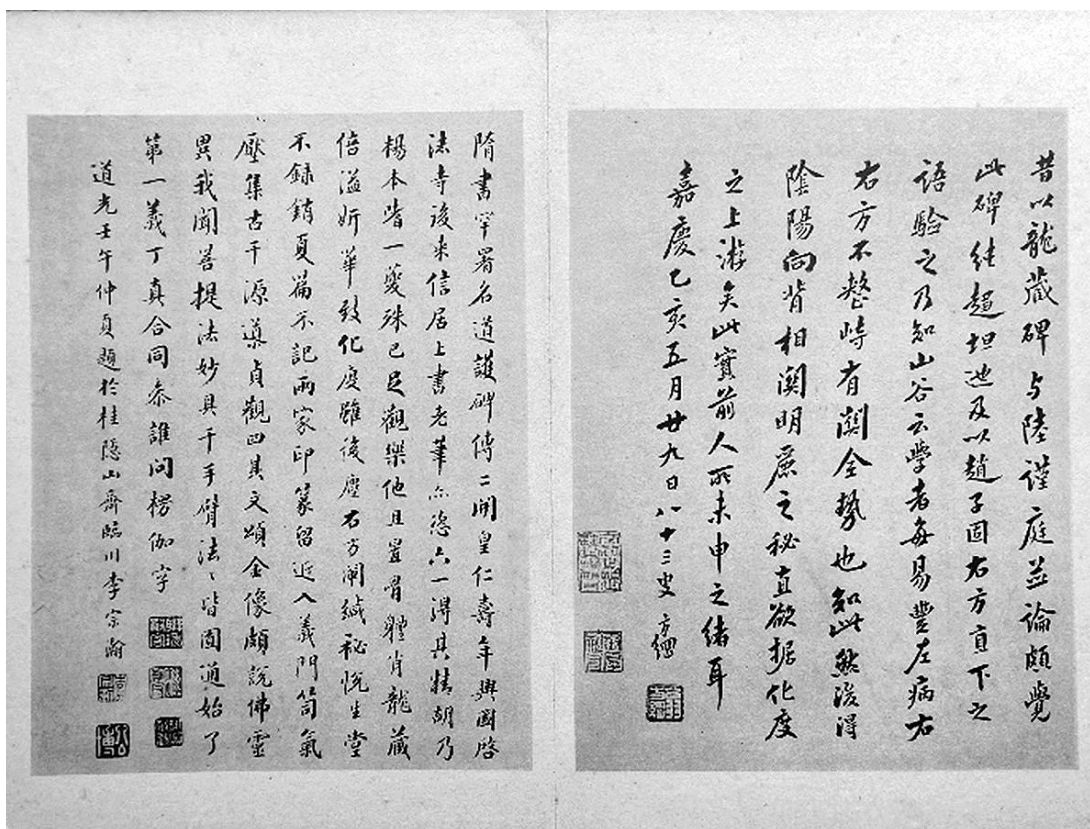 昔以龍藏碑与陸謹庭並論頗覺
此碑徑趨坦迆及以趙子固右方直下之
語驗之乃知山谷云學者每易豐左病右
右方不整峙有關全勢也知此然後得
陰陽向背相關明麗之秘直欲據化度
之上游矣此實前人所未申之緒耳
嘉慶乙亥五月廿九日八十三叟方綱
隋書罕署名道護碑傳二開皇仁壽年興國啓
法寺後來信居上書老筆亦恣六一得其精胡乃
楊本皆一夔殊已足觀樂他且置骨體肖龍藏
倍溢妍華致化度雖後塵右方闡緘秘悅生堂
不錄銷夏篇不記兩家印篆留近入義門笥氣
壓集古千源導貞觀四其文頌金像頗說佛靈
異我聞菩提法妙具千手臂法〻皆圓通始了
第一義丁真合同參誰問楞伽字
道光壬午仲夏題於桂隱山齋臨川李宗瀚